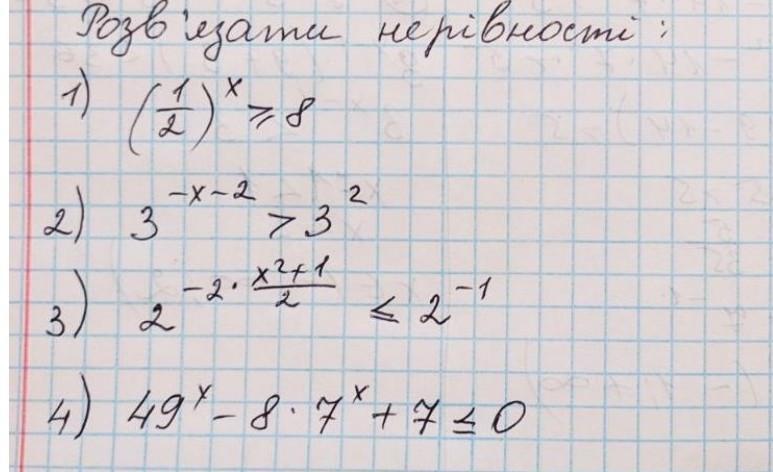 Розв'язати нерівності:
1) (1/2)^x ⩾ 8
2) 3^(-x-2) > 3^2
3) 2^(-2·(x^2+1)/2) ≤ 2^(-1)
4) 49^x - 8·7^x + 7 ≤ 0